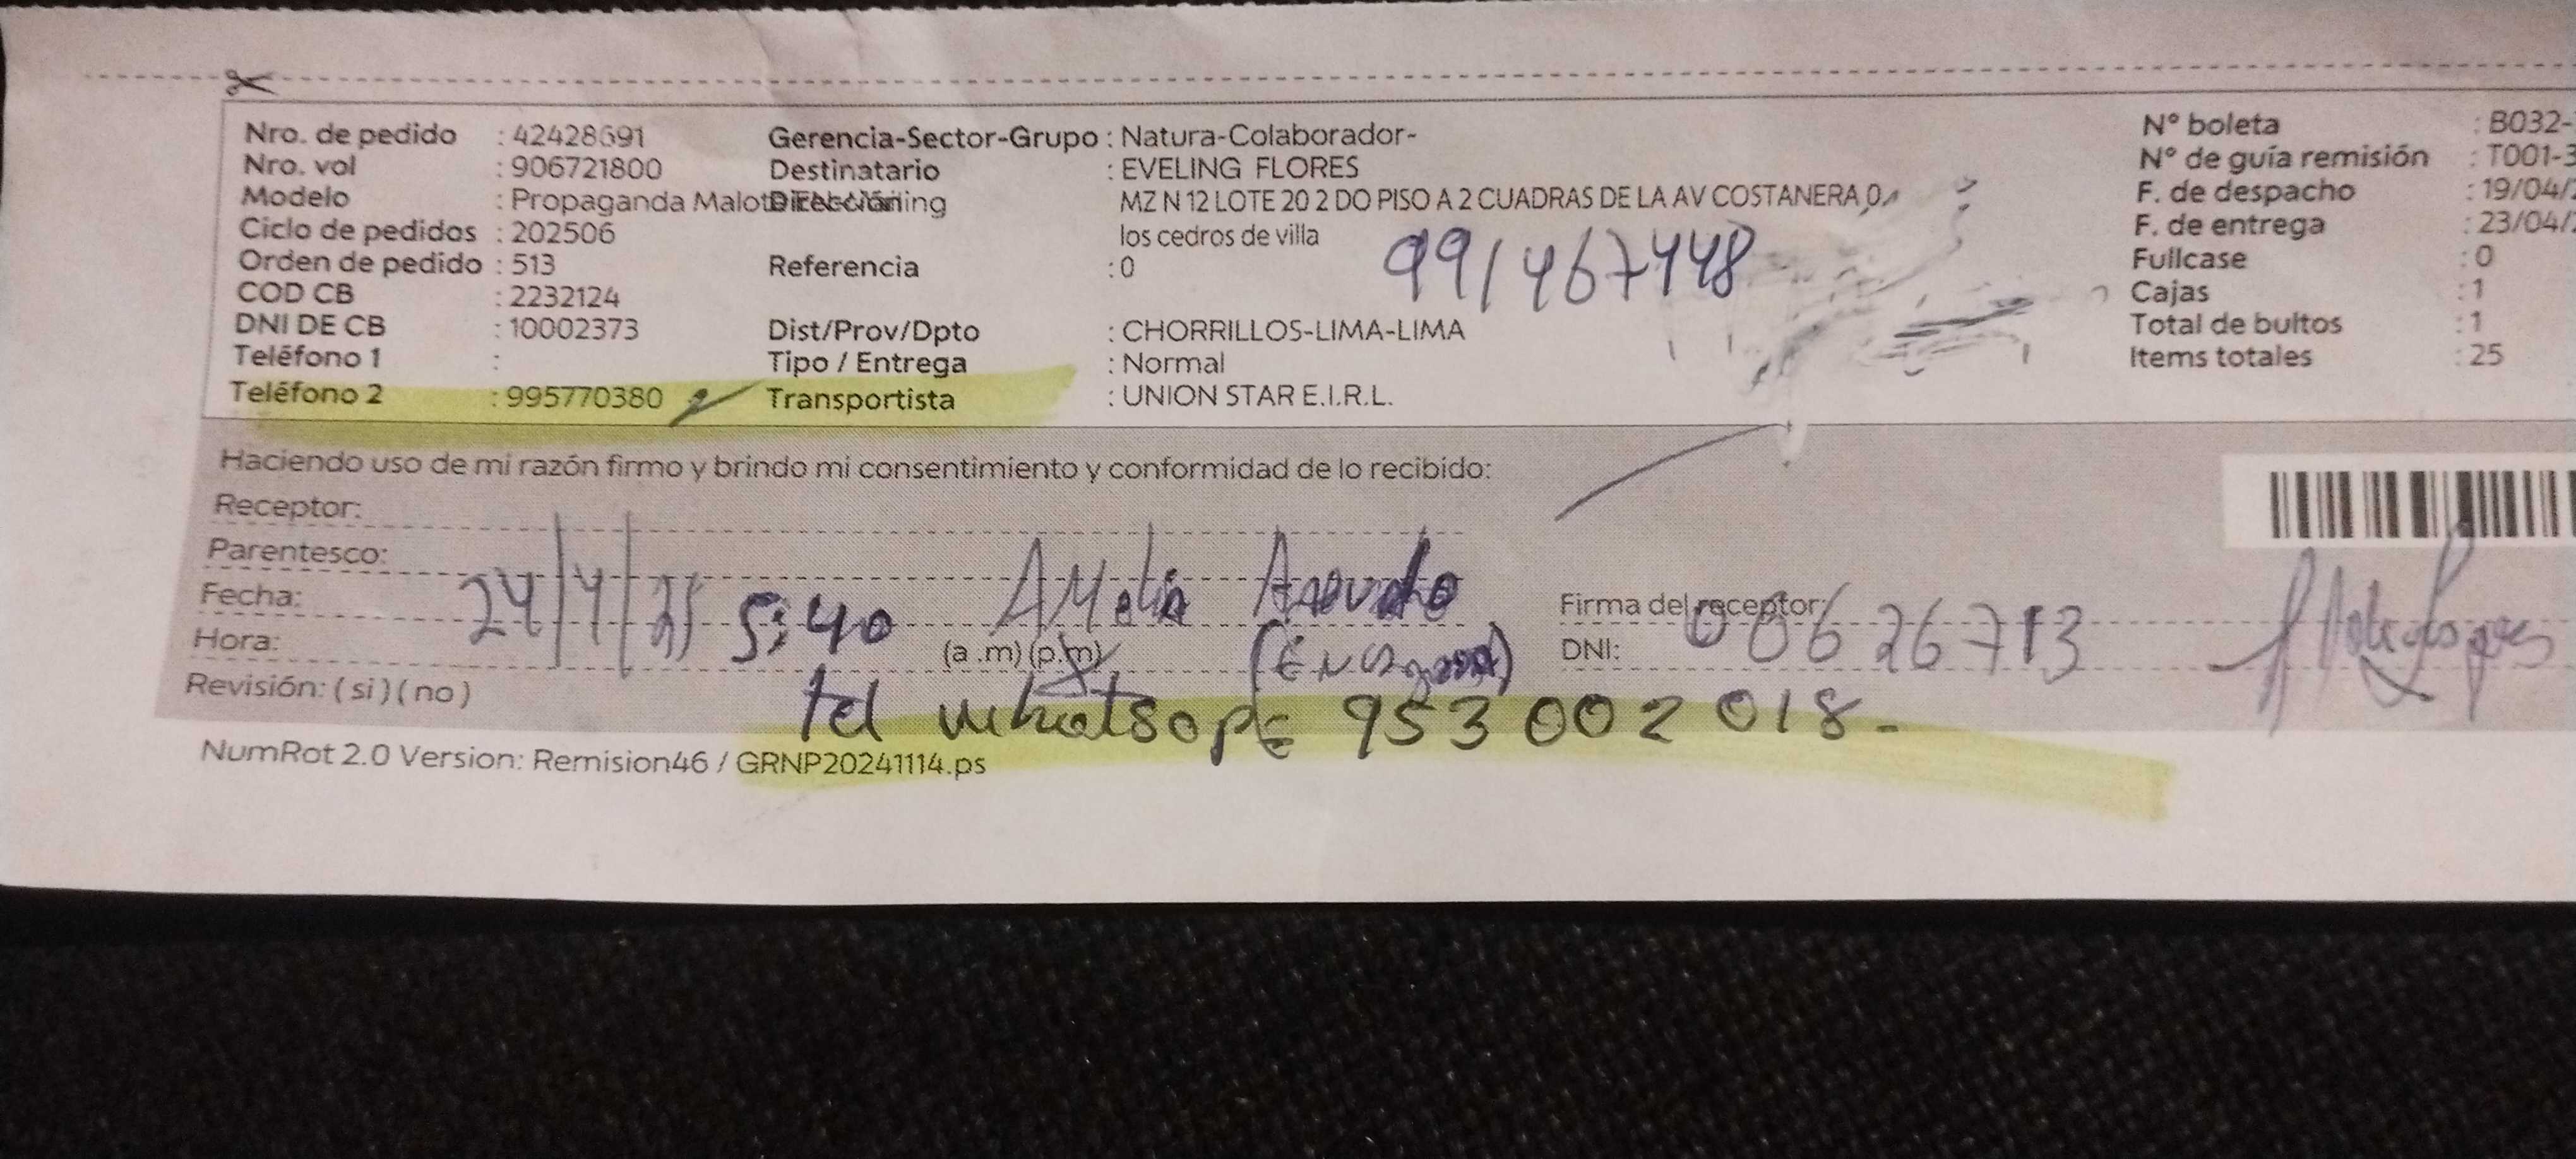 Nro. de pedido : 42428691 Gerencia-Sector-Grupo : Natura-Colaborador- N° boleta : B032-
Nro. vol : 906721800 Destinatario : EVELING FLORES N° de guía remisión : T001-3
Modelo : Propaganda Dirección MZ N 12 LOTE 20 2 DO PISO A 2 CUADRAS DE LA AV COSTANERA 0, F. de despacho : 19/04/2
Ciclo de pedidos : 202506 los cedros de villa F. de entrega : 23/04/2
991467448
Orden de pedido : 513 Referencia : 0 Fullcase : 0
COD CB : 2232124 Cajas : 1
DNI DE CB : 10002373 Dist/Prov/Dpto : CHORRILLOS-LIMA-LIMA Total de bultos : 1
Teléfono 1 : Tipo / Entrega : Normal Items totales : 25
Teléfono 2 : 995770380 Transportista : UNION STAR E.I.R.L.
Haciendo uso de mi razón firmo y brindo mi consentimiento y conformidad de lo recibido:
Receptor:
Parentesco:
Fecha: 24/4/25 5:40 Firma del receptor:
Hora: (a .m) (p.m) DNI: 00626713
Revisión: ( si ) ( no )
tel whatsope 953 002 018.-
NumRot 2.0 Version: Remision46 / GRNP20241114.ps